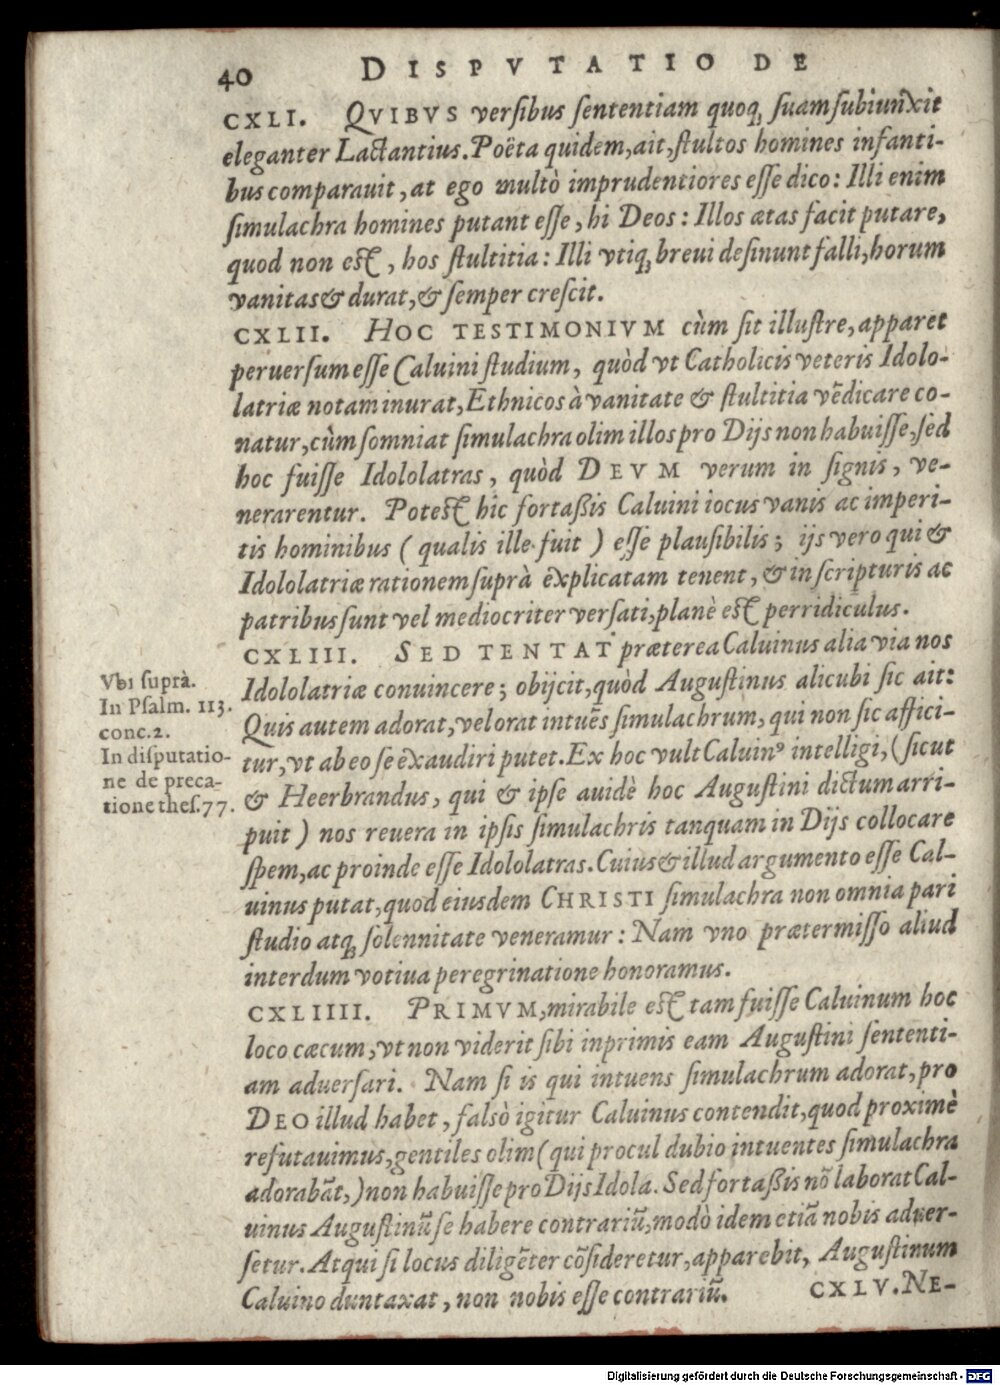 40 DISPVTATIO DE
CXLI. QVIBVS versibus sententiam quoq; suam subiunxit
eleganter Lactantius. Poëta quidem, ait, stultos homines infanti-
bus comparauit, at ego multò imprudentiores esse dico: Illi enim
simulachra homines putant esse, hi Deos: Illos ætas facit putare,
quod non est, hos stultitia: Illi vtiq; breui desinunt falli, horum
vanitas & durat, & semper crescit.
CXLII. HOC TESTIMONIVM cùm sit illustre, apparet
peruersum esse Caluini studium, quòd vt Catholicis veteris Idolo-
latriæ notam inurat, Ethnicos à vanitate & stultitia vẽdicare co-
natur, cùm somniat simulachra olim illos pro Dijs non habuisse, sed
hoc fuisse Idololatras, quòd DEVM verum in signis, ve-
nerarentur. Potest hic fortaßis Caluini iocus vanis ac imperi-
tis hominibus ( qualis ille fuit ) esse plausibilis; ijs vero qui &
Idololatriæ rationem suprà explicatam tenent, & in scripturis ac
patribus sunt vel mediocriter versati, planè est perridiculus.
CXLIII. SED TENTAT præterea Caluinus alia via nos
Idololatriæ conuincere; obijcit, quòd Augustinus alicubi sic ait:
Quis autem adorat, vel orat intuẽs simulachrum, qui non sic affici-
tur, vt ab eo se exaudiri putet. Ex hoc vult Caluinꝰ intelligi, (sicut
& Heerbrandus, qui & ipse auidè hoc Augustini dictum arri-
puit ) nos reuera in ipsis simulachris tanquam in Dijs collocare
spem, ac proinde esse Idololatras. Cuius & illud argumento esse Cal-
uinus putat, quod eiusdem CHRISTI simulachra non omnia pari
studio atq; solennitate veneramur: Nam vno prætermisso aliud
interdum votiua peregrinatione honoramus.
Vbi suprà.
In Psalm. 113.
conc. 2.
In disputatio-
ne de preca-
tione thes. 77.
CXLIIII. PRIMVM, mirabile est tam fuisse Caluinum hoc
loco cæcum, vt non viderit sibi inprimis eam Augustini sententi-
am aduersari. Nam si is qui intuens simulachrum adorat, pro
DEO illud habet, falsò igitur Caluinus contendit, quod proximè
refutauimus, gentiles olim (qui procul dubio intuentes simulachra
adorabãt,) non habuisse pro Dijs Idola. Sed fortaßis nõ laborat Cal-
uinus Augustinũ se habere contrariũ, modò idem etiã nobis aduer-
setur. Atqui si locus diligẽter cõsideretur, apparebit, Augustinum
Caluino duntaxat, non nobis esse contrariũ.
CXLV. NE-
Digitalisierung gefördert durch die Deutsche Forschungsgemeinschaft - DFG